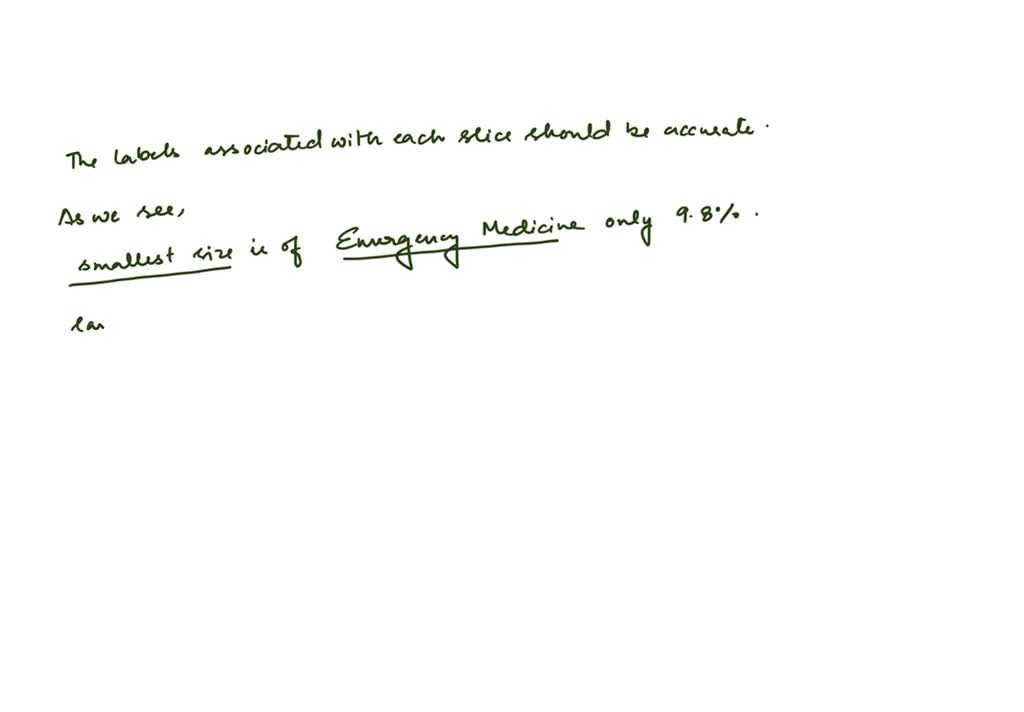 The labels associated with each slice should be accurate.
As we see,
smallest size is of Emergency Medicine only 9.8%.
lar